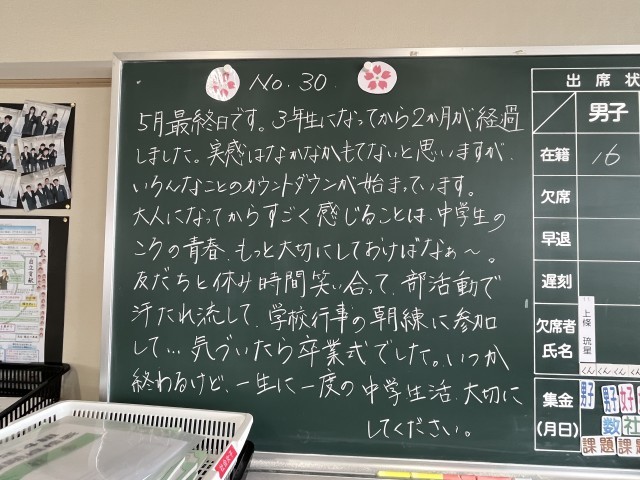 No. 30.
5月最終日です。3年生になってから2か月が経過
しました。実感はなかなかもてないと思いますが、
いろんなことのカウントダウンが始まっています。
大人になってからすごく感じることは、中学生の
この青春、もっと大切にしておけばなぁ〜。
友だちと休み時間笑い合って、部活動で
汗たれ流して、学校行事の朝練に参加
して…気づいたら卒業式でした。いつか
終わるけど、一生に一度の中学生活、大切に
してください。
出席状
男子
在籍
16
欠席
早退
遅刻
欠席者
氏名
上條 琉星
くん くん くん くん
集金
(月日)
男子
男子
女子
数
社
課題
課題